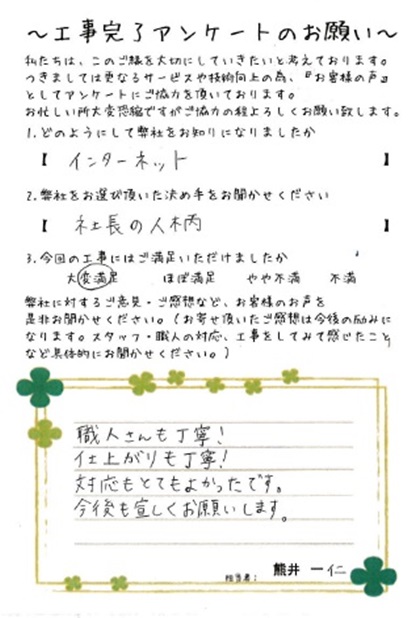 ～工事完了アンケートのお願い～
私たちは、このご縁を大切にしていきたいと考えております。
つきましては更なるサービスや技術向上の為、『お客様の声』
としてアンケートにご協力を頂いております。
お忙しい所大変恐縮ですがご協力の程よろしくお願い致します。
1.どのようにして弊社をお知りになりましたか
【 インターネット 】
2.弊社をお選び頂いた決め手をお聞かせください
【 社長の人柄 】
3.今回の工事にはご満足いただけましたか
大変満足 ほぼ満足 やや不満 不満
弊社に対するご意見・ご感想など、お客様のお声を
是非お聞かせください。（お寄せ頂いたご感想は今後の励みに
なります。スタッフ・職人の対応、工事をしてみて感じたこと
など具体的にお聞かせください。）
職人さんも丁寧！
仕上がりも丁寧！
対応もとてもよかったです。
今後も宜しくお願いします。
担当者： 熊井 一仁